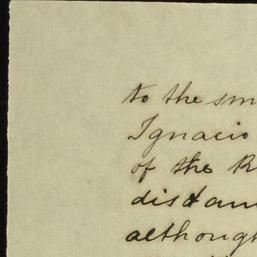 to the sm
Ignacio
of the R
distan
although